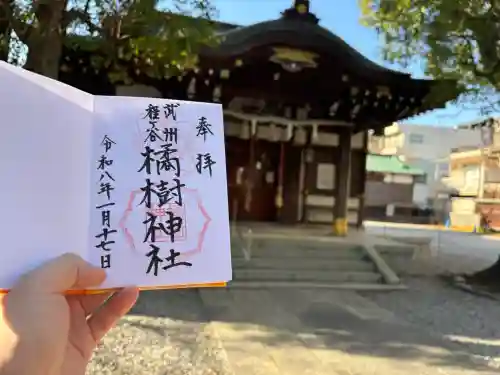 奉拝
武州
程ヶ谷
橘樹神社
令和八年一月十七日